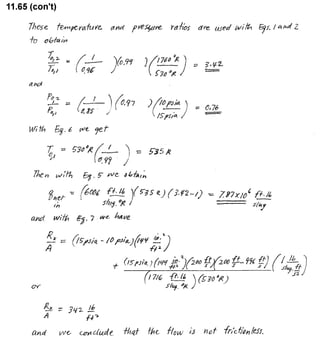 11.65 (con't)
These temperature and pressure ratios are used with Eqs. 1 and 2
to obtain
T₀,₂/T₀,₁ = (1/0.96)(0.99)(1760°R/530°R) = 3.42
and
P₀,₂/P₀,₁ = (1/0.85)(0.97)(10 psia/15 psia) = 0.76
With Eq. 6 we get
T₀,₁ = 530°R(1/0.99) = 535 R
Then with Eq. 5 we obtain
q net in = (6006 ft.lb/slug.°R)(535 R)(3.42-1) = 7.87×10⁶ ft.lb/slug
and with Eq. 7 we have
Rₓ/A = (15 psia - 10 psia)(144 in.²/ft²)
+ (15 psia)(144 in.²/ft²)(200 ft/s)(200 ft/s - 996 ft/s)(1 lb/slug.ft/s²)/(1716 ft.lb/slug.°R)(530°R)
or
Rₓ/A = 342 lb/ft²
and we conclude that the flow is not frictionless.